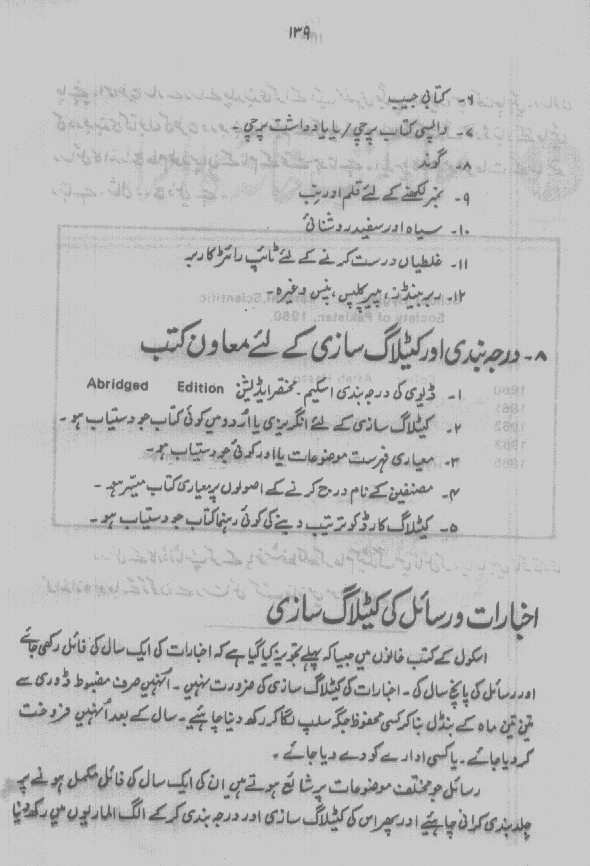 ۱۳۹
۶۔ کتابی جیب
۷۔ واپسی کتاب پرچی / یا یادداشت پرچی۔
۸۔ گوند
۹۔ نمبر لکھنے کے لئے قلم اور نب
۱۰۔ سیاہ اور سفید روشنائی
۱۱۔ غلطیاں درست کرنے کے لئے ٹائپ رائٹر کا ربر
۱۲۔ ربر بینڈز، پیپر کلپس، پنس وغیرہ۔
۸۔ درجہ بندی اور کیٹلاگ سازی کے لئے معاون کتب
۱۔ ڈیوی کی درجہ بندی اسکیم۔ مختصر ایڈیشن Abridged Edition
۲۔ کیٹلاگ سازی کے لئے انگریزی یا اردو میں کوئی کتاب جو دستیاب ہو۔
۳۔ معیاری فہرست موضوعات یا اور کوئی جو دستیاب ہو۔
۴۔ مصنفین کے نام درج کرنے کے اصولوں پر معیاری کتاب میسر ہو۔
۵۔ کیٹلاگ کارڈ کو ترتیب دینے کی کوئی رہنما کتاب جو دستیاب ہو۔
اخبارات و رسائل کی کیٹلاگ سازی
اسکول کے کتب خانوں میں جیسا کہ پہلے تجویز کیا گیا ہے کہ اخبارات کی ایک سال کی فائل رکھی جائے
اور رسائل کی پانچ سال کی۔ اخبارات کی کیٹلاگ سازی کی ضرورت نہیں۔ اُنہیں صرف مضبوط ڈوری سے
تین تین ماہ کے بنڈل بنا کر کسی محفوظ جگہ سلپ لگا کر رکھ دینا چاہئیے۔ سال کے بعد اُنہیں فروخت
کر دیا جائے۔ یا کسی ادارے کو دے دیا جائے۔
رسائل جو مختلف موضوعات پر شائع ہوتے ہیں ان کی ایک سال کی فائل مکمل ہونے پر
جلد بندی کرانی چاہئیے اور پھر اس کی کیٹلاگ سازی اور درجہ بندی کر کے الگ الماریوں میں رکھ دینا